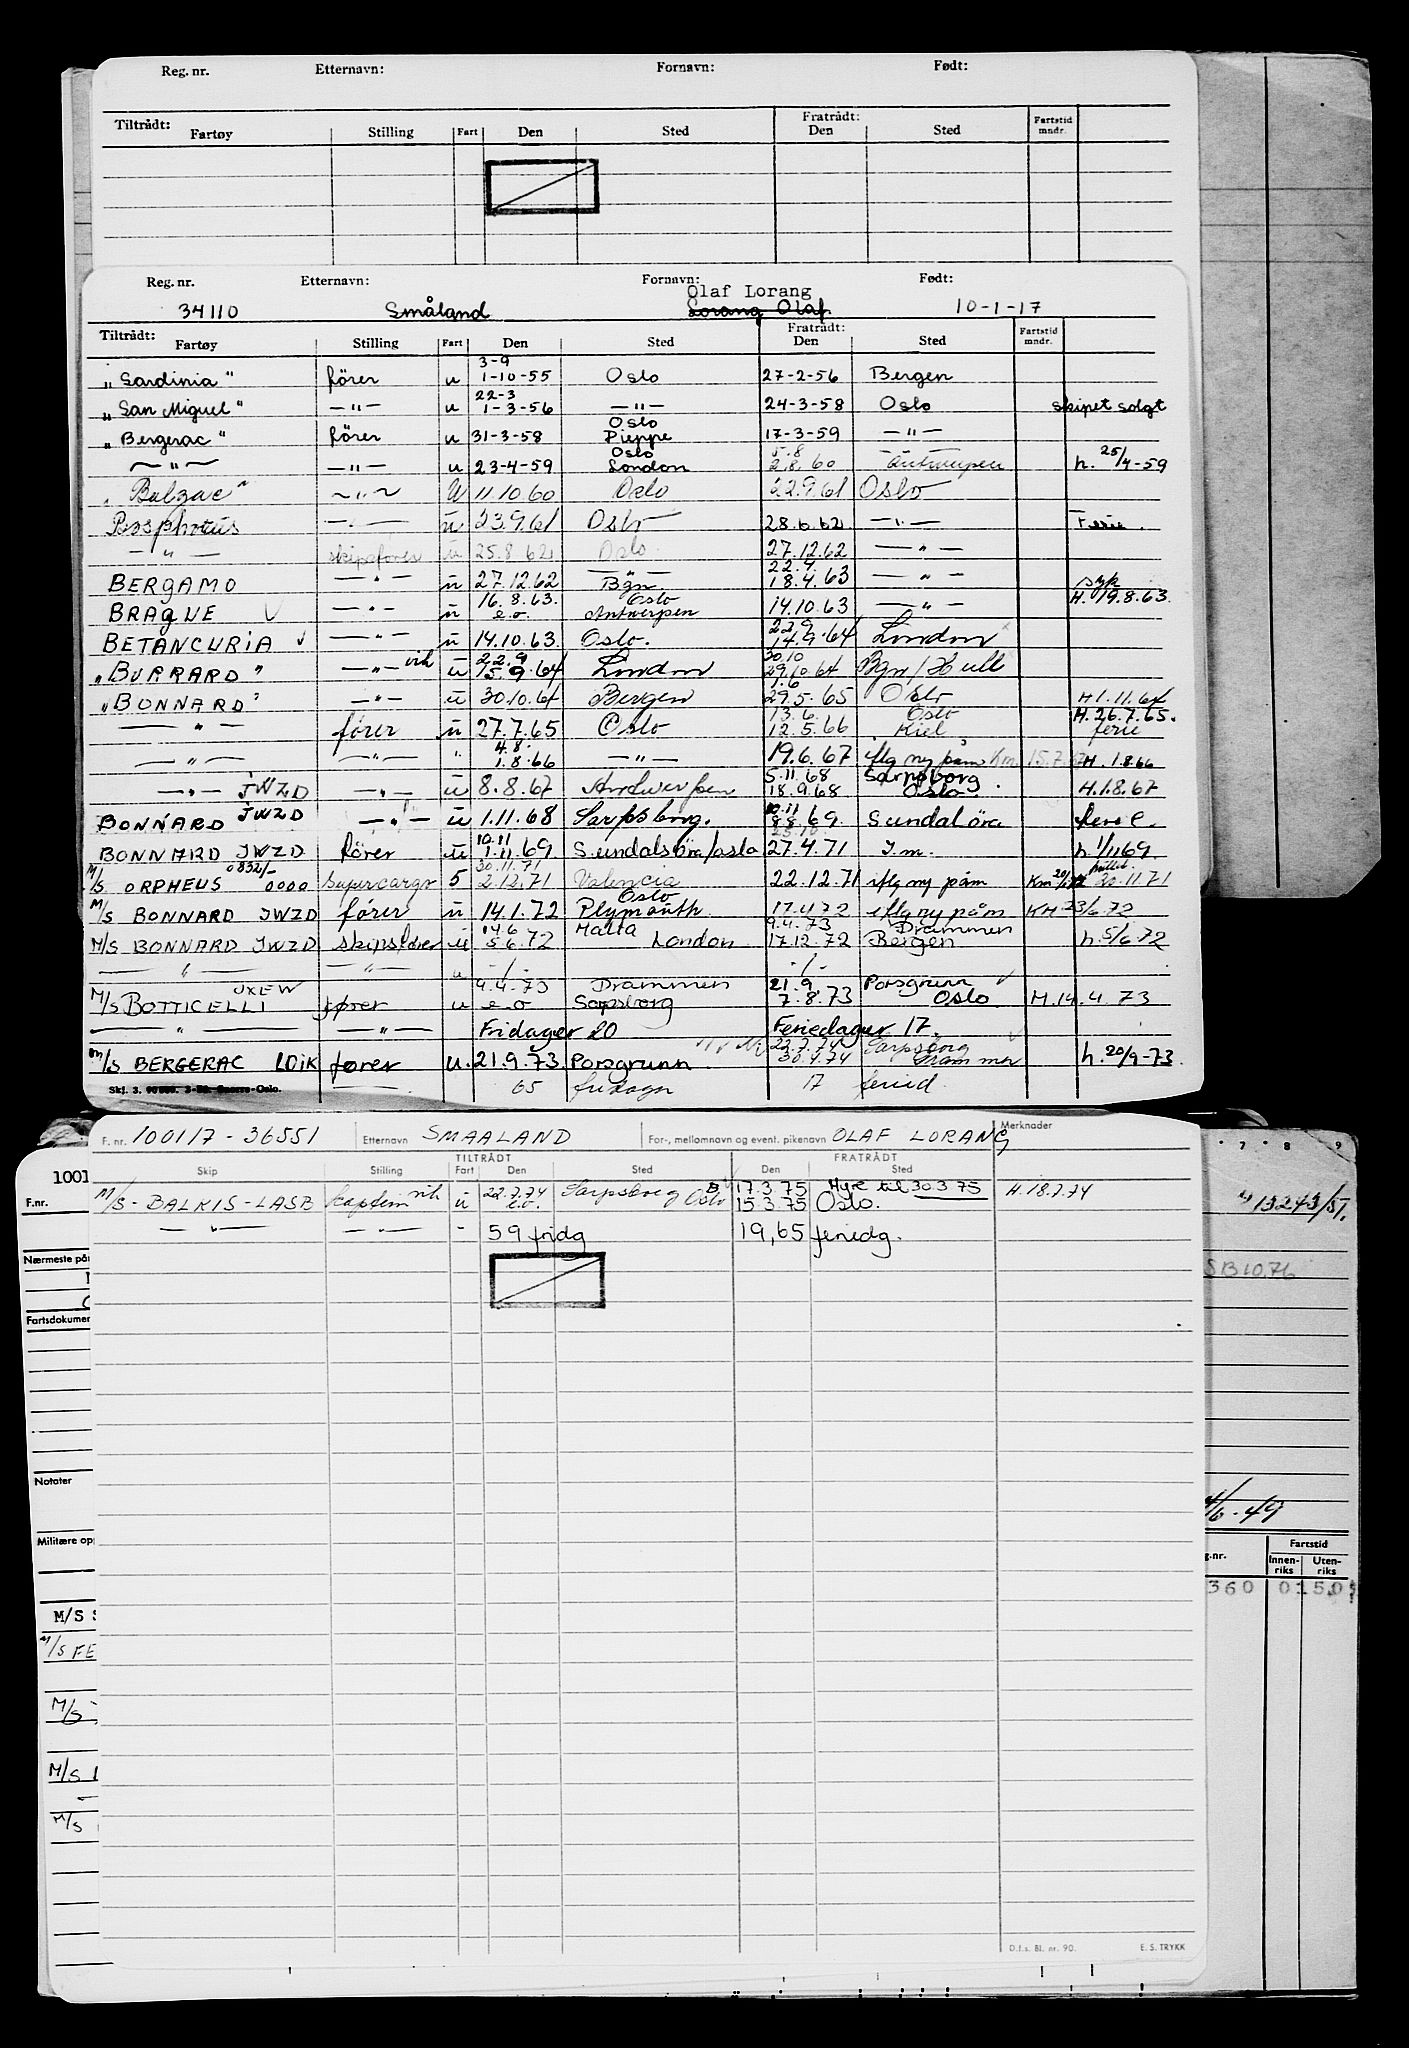 Reg. nr. Etternavn: Fornavn: Født:
Tiltrådt: Fratrådt: Fartstid
Fartøy Stilling Fart Den Sted Den Sted mndr.
Reg. nr. Etternavn: Fornavn: Født:
Olaf Lorang
34110 Småland Lorang Olaf 10-1-17
Tiltrådt: Fratrådt: Fartstid
Fartøy Stilling Fart Den Sted Den Sted mndr.
3-9
"Sardinia" förer u 1-10-55 Oslo 27-2-56 Bergen
22-3
"San Miguel" —"— u 1-3-56 —"— 24-3-58 Oslo skipet solgt
Oslo
"Bergerac" förer u 31-3-58 Dieppe 17-3-59 —"—
Oslo 5.8
—"— —"— u 23-4-59 London 2.8.60 Antwerpen h. 25/4-59
"Balzac" —"— U 11.10.60 Oslo 22.9.61 Oslo
Bosphorus —"— u 23.9.61 Oslo 28.6.62 —"— Ferie.
—"— skipsfører u 25.8.62 Oslo. 27.12.62 —"—
22.4.
BERGAMO —"— u 27.12.62 Bgn 18.4.63 —"— syk
16.8.63. Oslo H. 19.8.63.
BRAGUE —"— u e.o. Antwerpen 14.10.63 —"—
22.9
BETANCURIA —"— u 14.10.63. Oslo. 14.9.64 London
22.9 30.10
"BURRARD" —"— vik u 15.9.64 London 29.10.64 Bgn/Hull
1.6
"BONNARD" —"— u 30.10.64 Bergen 29.5.65 Oslo H 1.11.64
13.6. Oslo H. 26.7.65.
—"— fører u 27.7.65 Oslo 12.5.66 Kiel ferie
4.8.
—"— —"— " 1.8.66 —"— 19.6.67 iflg ny påm Km 15.7.67 H. 1.8.66
5.11.68 Sarpsborg
—"— JWZD —"— u 8.8.67 Antwerpen 18.9.68 Oslo. H. 1.8.67
10.11
BONNARD JWZD —"— u 1.11.68 Sarpsborg. 8.8.69. Sundalsöra ferie.
10.11 25.10
BONNARD JWZD förer u 1.11.69 Sundalsöra/oslo 27.4.71 I.m. h. 1/1169.
0832/- 30.11.71
M/S ORPHEUS 0000 Supercargo 5 2.12.71 Valencia 22.12.71 iflg ny påm Km 20/1 72 20.11.71
Oslo
M/S BONNARD JWZD fører u 14.1.72 Plymouth 17.4.72 iflg ny påm KM 23/6.72
14.6 Malta 9.4.73 Drammen
M/S BONNARD JWZD skipsfører u 5.6.72 London 17.12.72 Bergen h. 5/6.72
—"— —"— u -/- -/-
UXEW 4.4.73 Drammen 21.9. Porsgrunn
M/S BOTTICELLI fører u e.o Sarpsborg 7.8.73 Oslo M. 14.4.73
—"— —"— Fridager 20 Feriedager 17.
22.7.74 Sarpsborg
M/S BERGERAC LDIK fører u. 21.9.73. Porsgrunn 30.4.74 Drammen h. 20/9-73.
65 fridagr 17 feried.
F. nr. 100117-36551 Etternavn SMAALAND For-, mellomnavn og event. pikenavn OLAF LORANG Merknader
TILTRÅDT FRATRÅDT
Skip Stilling Fart Den Sted Den Sted
22.7.74 17.3.75 Hyre til 30.3.75
M/S-BALKIS-LASB Kaptein vik u e.o. Sarpsborg Oslo 15.3.75 Oslo. H. 18.7.74
—"— —"— - 59 fridg 19,65 feriedg.
D.f.s. Bl. nr. 90. E. S. TRYKK
1001
F.nr.
Nærmeste på
Fartsdokumen
Notater
Militære opp
M/S S
M/S FE
M/S
M/S
M/S
7 8 9
13243/51.
SB10.76
4/6.49
g.nr. Fartstid
Innenriks Utenriks
360 0150